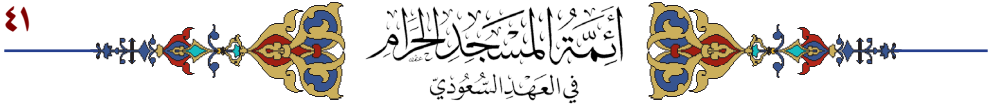 ٤١
أَئِمَّةُ المَسْجِدِ الحَرَامِ
في العَهْدِ السُّعُودِيّ